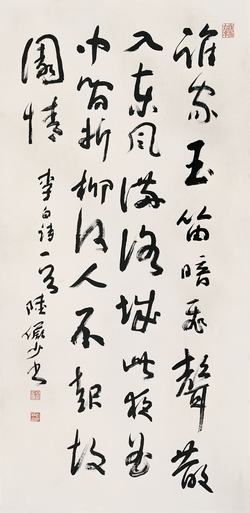 誰家玉笛暗飛聲散
入東風滿洛城此夜曲
中聞折柳何人不起故
園情
李白詩一首 陸儼少書